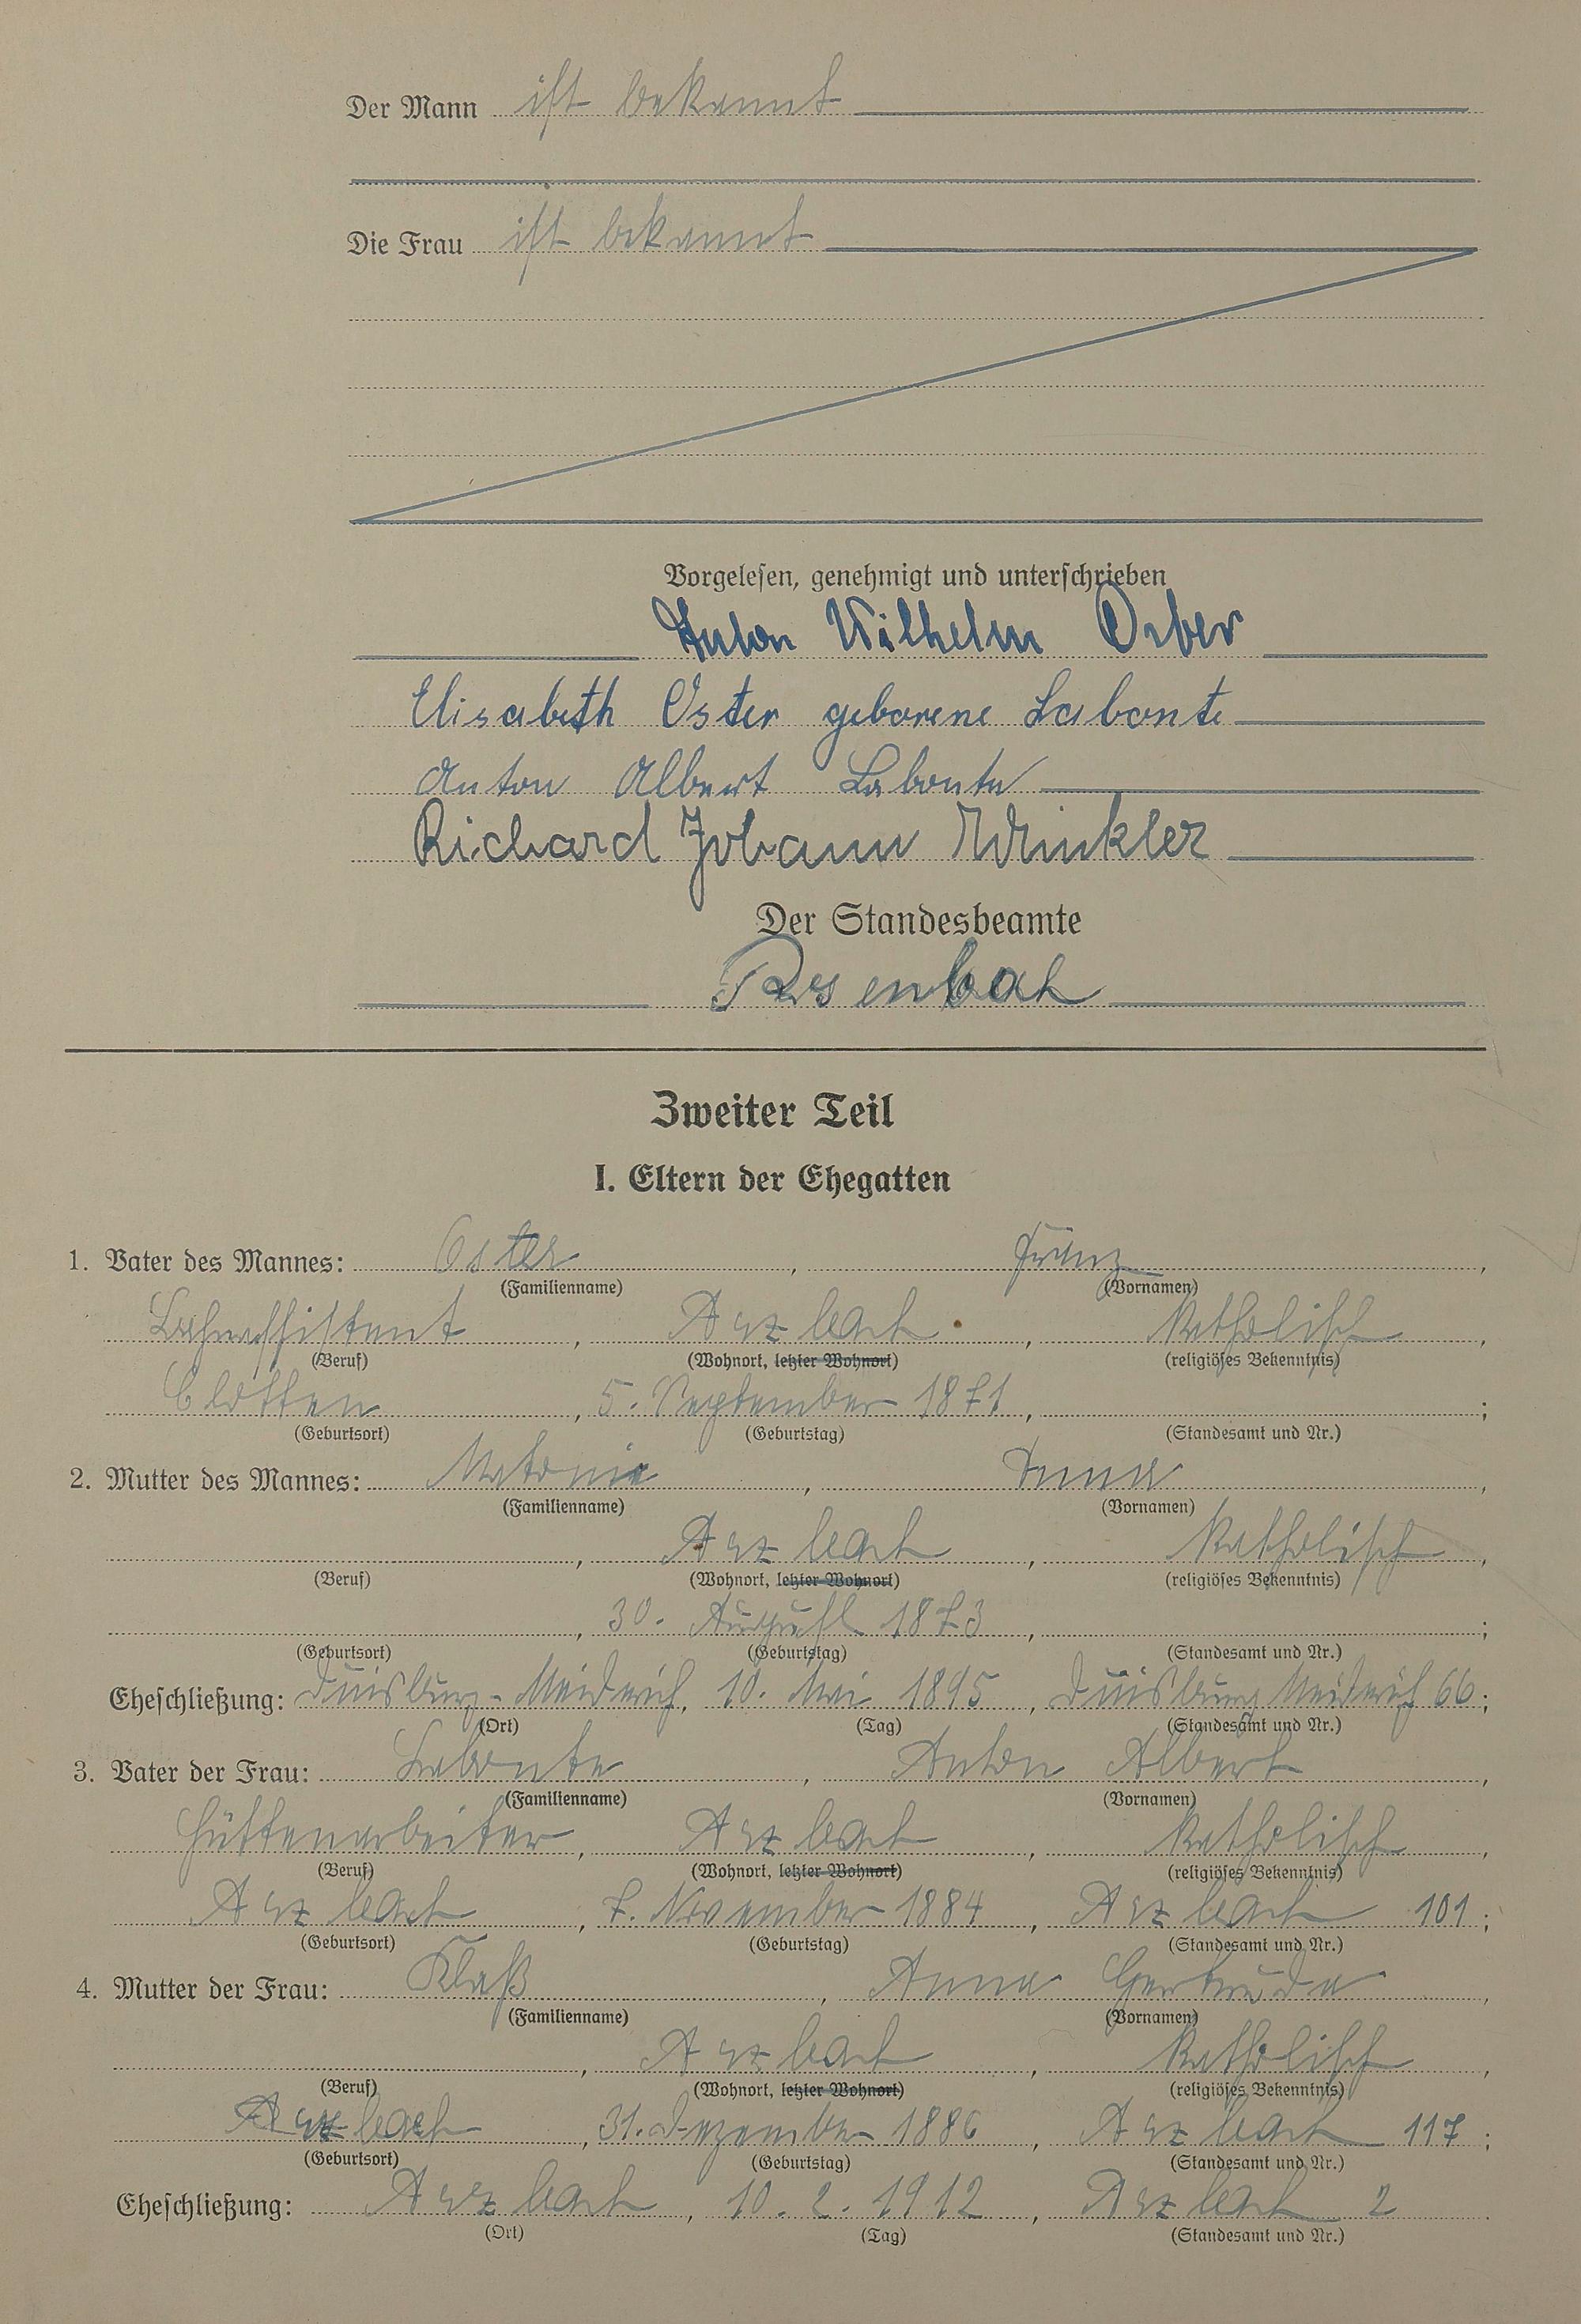 Der Mann ist bekannt
Die Frau ist bekannt
Vorgelesen, genehmigt und unterschrieben
Anton Wilhelm Oster
Elisabeth Oster geborene Labonte
Anton Albert Labonte
Richard Johann Winkler
Der Standesbeamte
Zweiter Teil
I. Eltern der Ehegatten
1. Vater des Mannes: Oster, Franz,
(Familienname) (Vornamen)
Arzbach, katholisch,
(Beruf) (Wohnort, letzter Wohnort) (religiöses Bekenntnis)
Clotten, 5. September 1871,
(Geburtsort) (Geburtstag) (Standesamt und Nr.)
2. Mutter des Mannes: , Anna,
(Familienname) (Vornamen)
, Arzbach, katholisch,
(Beruf) (Wohnort, letzter Wohnort) (religiöses Bekenntnis)
, 30. August 1873, ;
(Geburtsort) (Geburtstag) (Standesamt und Nr.)
Eheschließung: Duisburg-Meiderich, 10. Mai 1895, Duisburg Meiderich 66;
(Ort) (Tag) (Standesamt und Nr.)
3. Vater der Frau: Labonte, Anton Albert,
(Familienname) (Vornamen)
Hüttenarbeiter, Arzbach, katholisch,
(Beruf) (Wohnort, letzter Wohnort) (religiöses Bekenntnis)
Arzbach, 7. November 1884, Arzbach 101;
(Geburtsort) (Geburtstag) (Standesamt und Nr.)
4. Mutter der Frau: Klaß, Anna Gertruda,
(Familienname) (Vornamen)
, Arzbach, katholisch,
(Beruf) (Wohnort, letzter Wohnort) (religiöses Bekenntnis)
Arzbach, 31. Dezember 1886, Arzbach 117;
(Geburtsort) (Geburtstag) (Standesamt und Nr.)
Eheschließung: Arzbach, 10. 2. 1912, Arzbach 2
(Ort) (Tag) (Standesamt und Nr.)